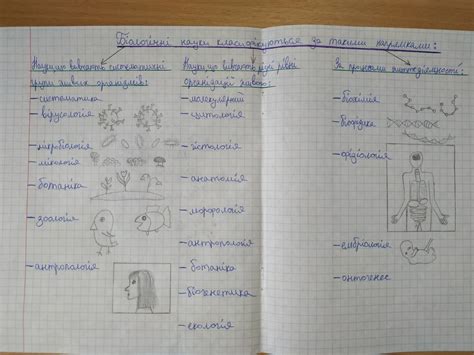 Біологічні науки класифікуються за такими напрямками:
Науки, що вивчають систематичні
групи живих організмів:
-систематика
-вірусологія
-мікробіологія
-мікологія
-ботаніка
-зоологія
-антропологія
Науки, що вивчають різні рівні
організації живого:
-молекулярная
-цитологія
-гістологія
-анатомія
-морфологія
-антропологія
-ботаніка
-біогенетика
-екологія
За процесами життєдіяльності:
-біохімія
-біофізика
-фізіологія
-ембріологія
-онтогенез